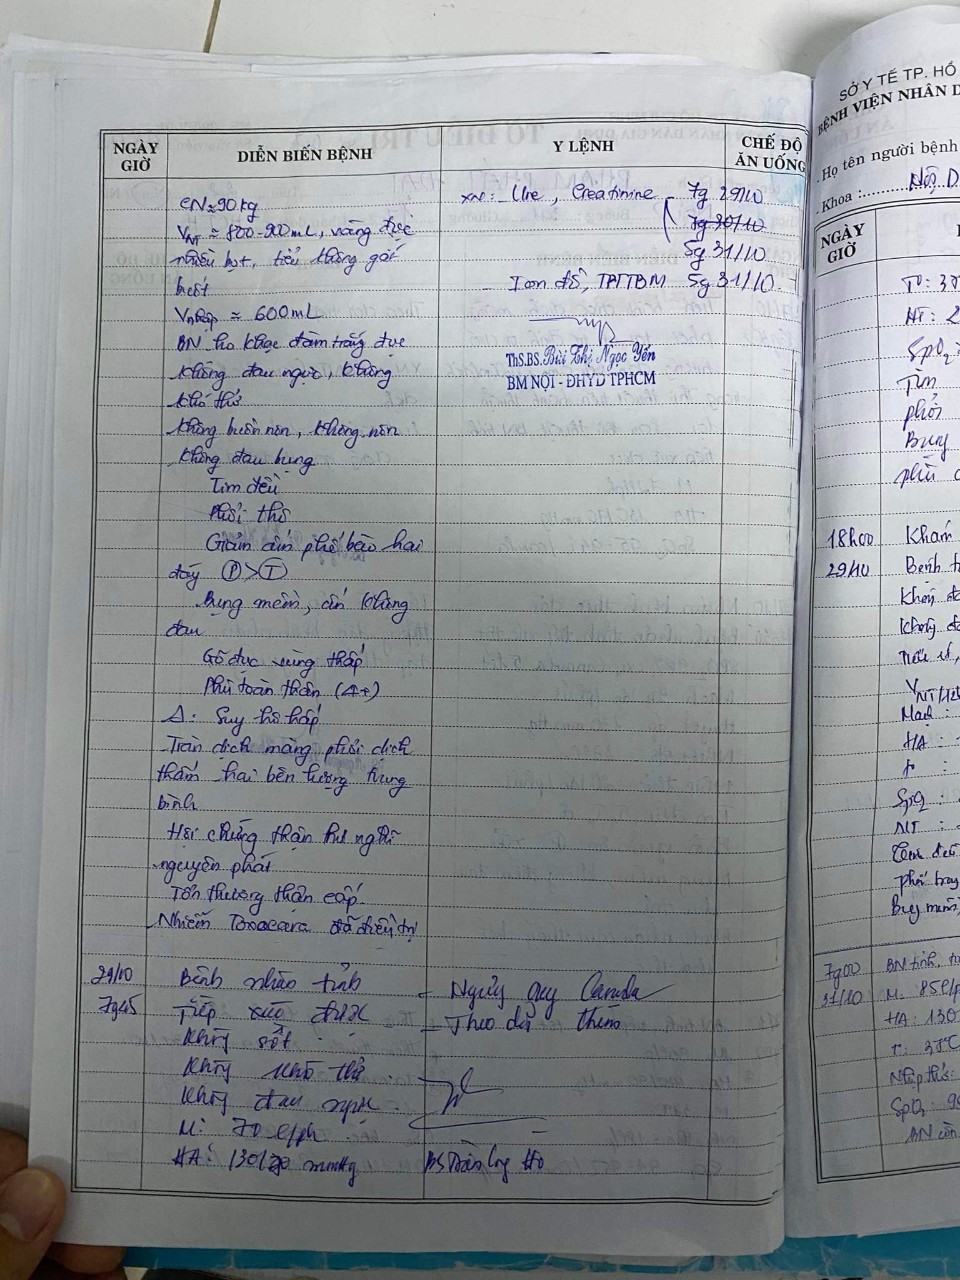 NGÀY GIỜ
DIỄN BIẾN BỆNH
Y LỆNH
CHẾ ĐỘ ĂN UỐNG
CN ≈ 90 kg
V NT ≈ 800-900 mL, vàng đục
nhiều bọt, tiểu không gắt
buốt
V nhập ≈ 600 mL
BN ho khạc đàm trắng đục
không đau ngực, không
khó thở
không buồn nôn, không nôn
không đau bụng
Tim đều
Phổi thô
Giảm âm phế bào hai
đáy (P) > (T)
Bụng mềm, ấn không
đau
Gõ đục vùng thấp
Phù toàn thân (4+)
Δ: Suy hô hấp
Tràn dịch màng phổi dịch
thấm hai bên lượng trung
bình
Hội chứng thận hư nghĩ
nguyên phát
Tổn thương thận cấp
Nhiễm Toxocara đã điều trị
XN: Ure, Creatinine 7g 29/10
7g 30/10
5g 31/10
- Ion đồ, TPTTBM 5g 31/10
ThS.BS. Bùi Thị Ngọc Yến
BM NỘI - ĐHYD TPHCM
29/10
7g45
Bệnh nhân tỉnh
Tiếp xúc được
Không sốt
Không khó thở
Không đau ngực
M: 70 l/ph
HA: 130/ mmHg
- Ngưng oxy Canula
- Theo dõi thêm
SỞ Y TẾ TP. HỒ
BỆNH VIỆN NHÂN D
Họ tên người bệnh
Khoa: Nội
NGÀY GIỜ
SpO2
Tim
phổi
Bụng
phù
18h00
29/10
Khám
Bệnh
Không
Không
V NT/
Mạch:
HA:
SpO2:
NT:
Tim đều
Phổi trong
Bụng mềm,
7g00
31/10
BN tỉnh,
M: 85 l/p
HA: 130
SpO2: 9
BN còn